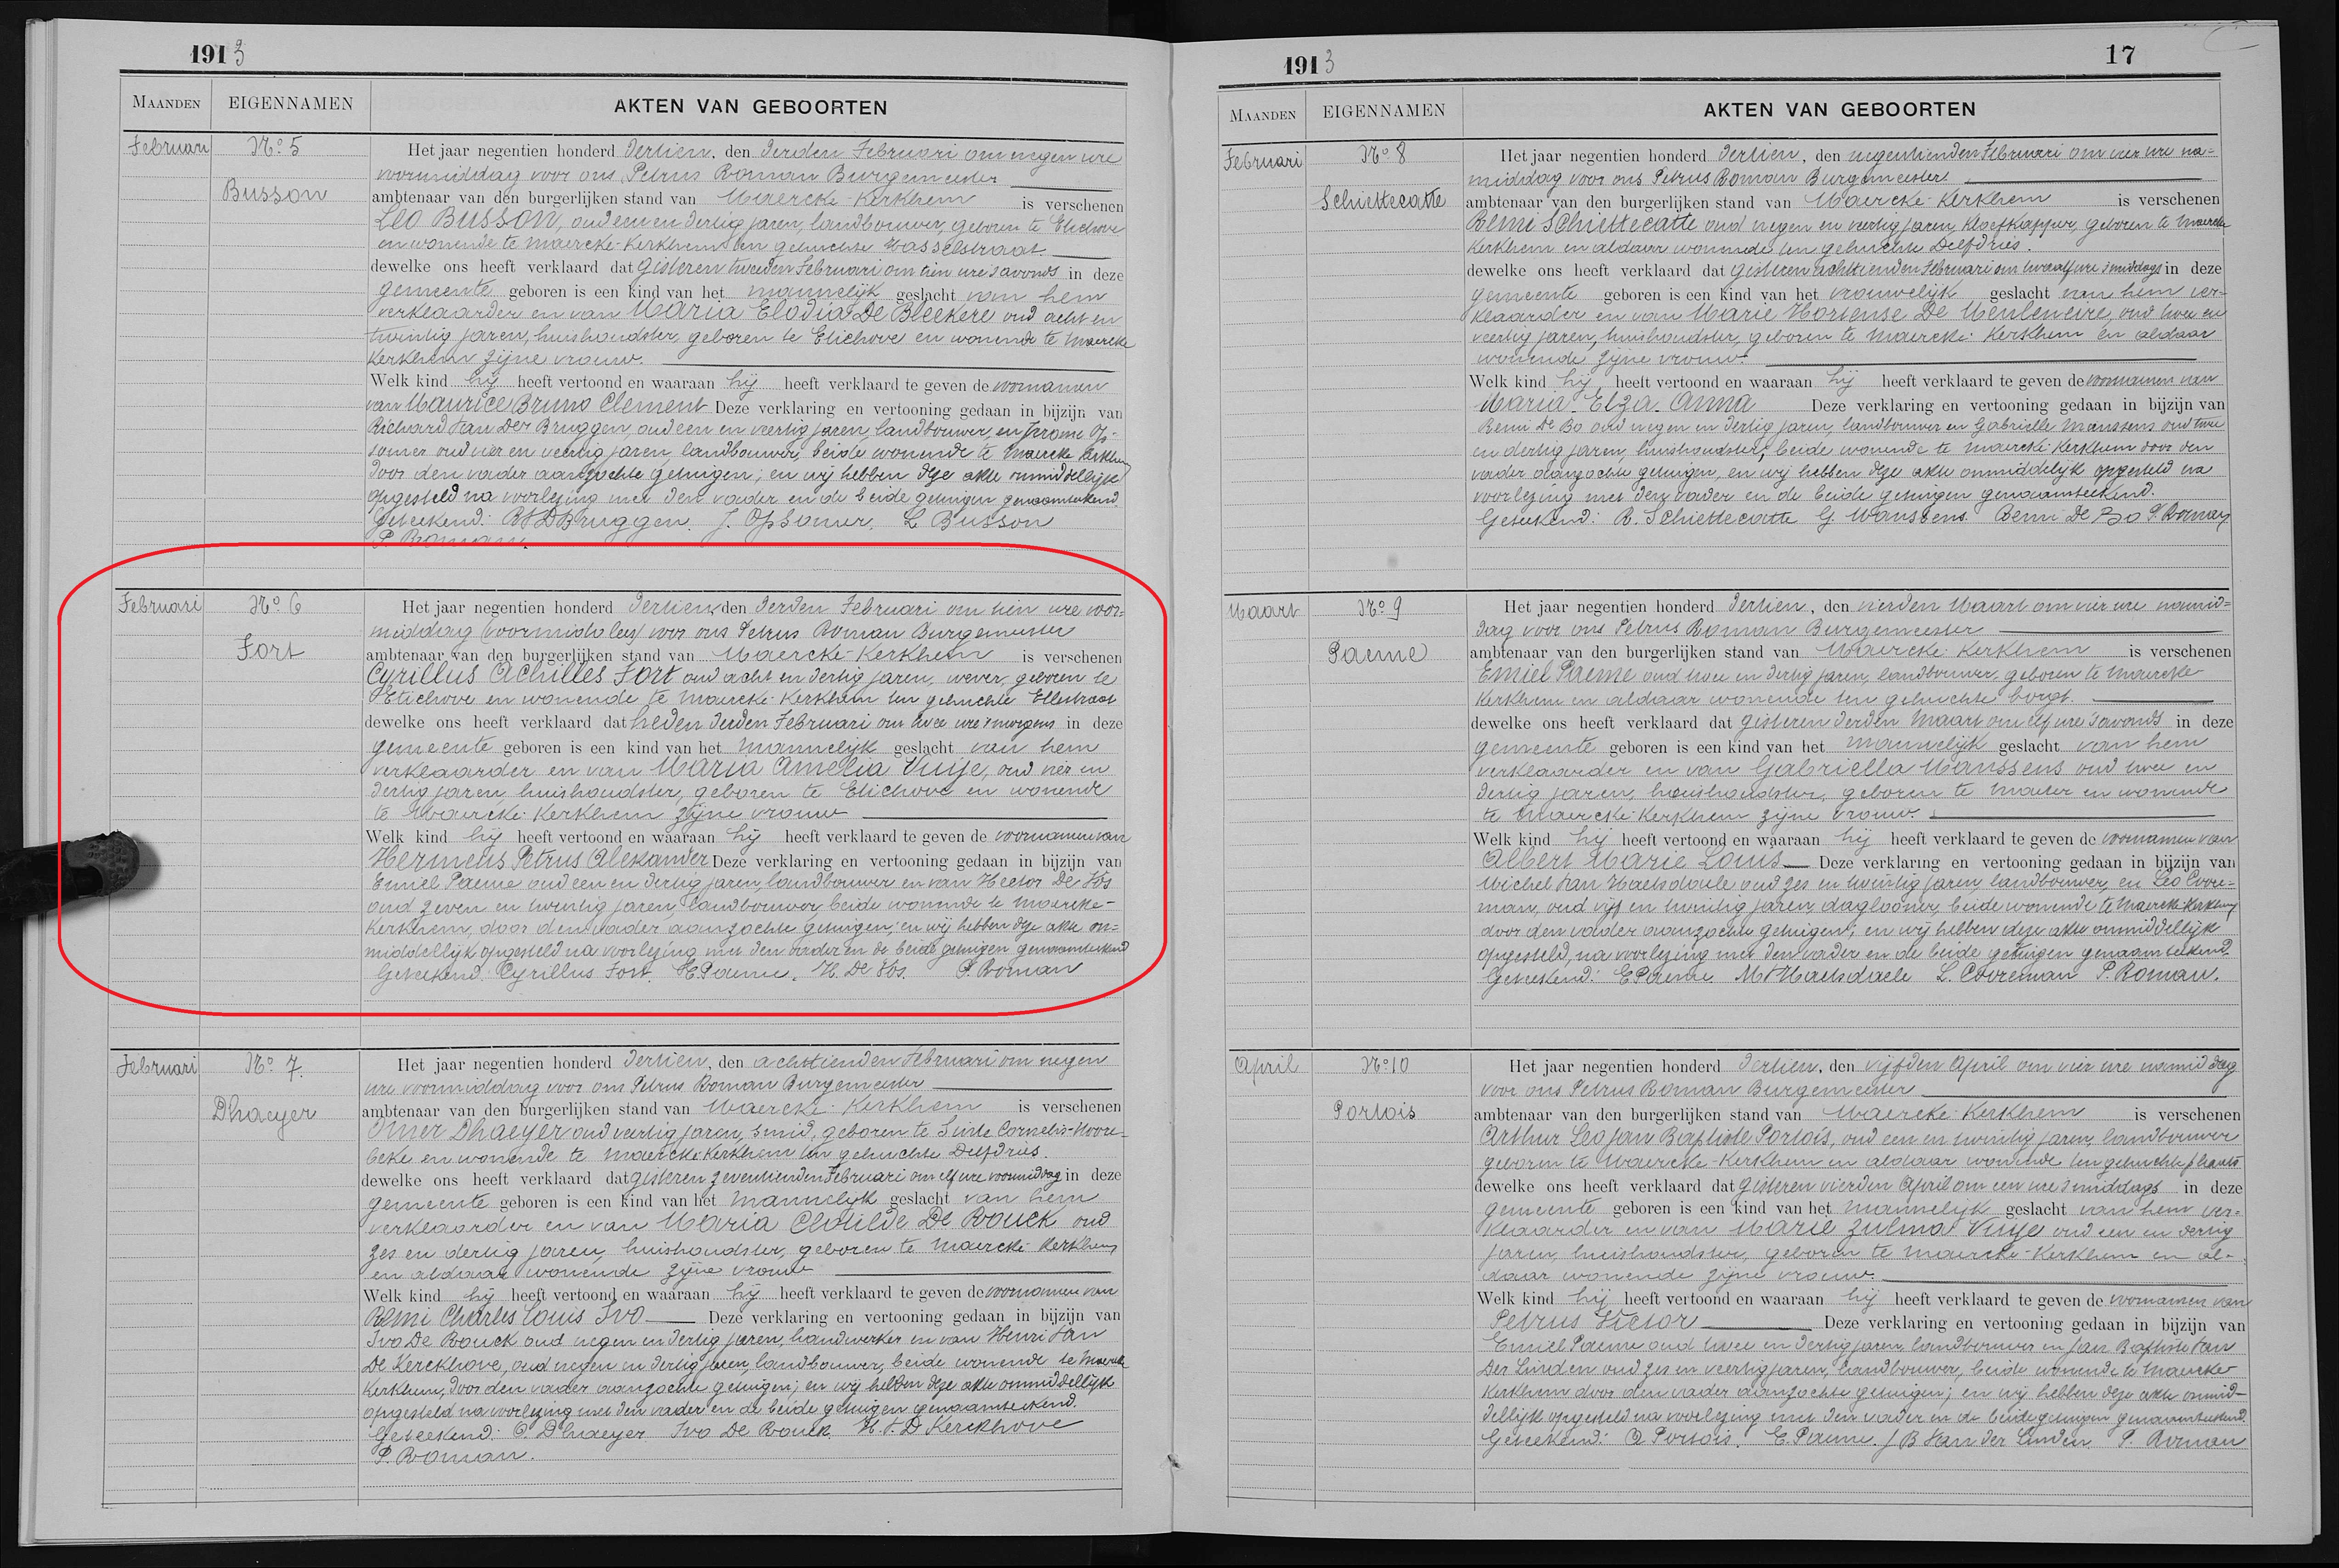 1913
MAANDEN EIGENNAMEN AKTEN VAN GEBOORTEN
Februari No 5 Het jaar negentien honderd dertien, den derden Februari om negen ure
voormiddag voor ons Petrus Roman Burgemeester
Busson ambtenaar van den burgerlijken stand van Maercke-Kerkhem is verschenen
Leo Busson, oud een en dertig jaren, landbouwer, geboren te Etichove
en wonende te Maercke-Kerkhem ten gehuchte Hasselstraat.
dewelke ons heeft verklaard dat gisteren tweeden Februari om tien ure 's avonds in deze
gemeente geboren is een kind van het mannelijk geslacht van hem
verklaarder en van Maria Elodia De Bleekere oud acht en
twintig jaren, huishoudster, geboren te Etichove en wonende te Maercke
Kerkhem zijne vrouw.
Welk kind hij heeft vertoond en waaraan hij heeft verklaard te geven de voornamen
van Maurice Bruno Clement Deze verklaring en vertooning gedaan in bijzijn van
Richard Van Der Bruggen, oud een en veertig jaren, landbouwer, en Jerome Op-
somer oud vier en veertig jaren, landbouwer, beide wonende te Maercke Kerkhem
door den vader aanzochte getuigen; en wij hebben deze akte onmiddellijk
opgesteld na voorlezing met den vader en de beide getuigen genaamteekend.
Geteekend: RVDBruggen. J. Opsomer. L Busson
P. Roman.
Februari No 6 Het jaar negentien honderd dertien, den derden Februari om tien ure voor-
middag (voormiddag) voor ons Petrus Roman Burgemeester
Fort ambtenaar van den burgerlijken stand van Maercke-Kerkhem is verschenen
Cyrillus Achilles Fort oud acht en dertig jaren, wever, geboren te
Etichove en wonende te Maercke-Kerkhem ten gehuchte Ellestraat
dewelke ons heeft verklaard dat heden derden Februari om twee ure 's morgens in deze
gemeente geboren is een kind van het mannelijk geslacht van hem
verklaarder en van Maria Amelia Vuije, oud vier en
dertig jaren, huishoudster, geboren te Etichove en wonende
te Maercke-Kerkhem zijne vrouw
Welk kind hij heeft vertoond en waaraan hij heeft verklaard te geven de voornamen van
Hermens Petrus Alexander Deze verklaring en vertooning gedaan in bijzijn van
Emiel Paeme oud een en dertig jaren, landbouwer en van Hector De Vos
oud zeven en twintig jaren, landbouwer, beide wonende te Maercke-
Kerkhem, door den vader aanzochte getuigen; en wij hebben deze akte on-
middellijk opgesteld na voorlezing met den vader en de beide getuigen genaamteekend
Geteekend: Cyrillus Fort. E Paeme. H. De Vos. P. Roman
Februari No 7. Het jaar negentien honderd dertien, den achttienden Februari om negen
ure voormiddag voor ons Petrus Roman Burgemeester
Dhaeyer ambtenaar van den burgerlijken stand van Maercke-Kerkhem is verschenen
Omer Dhaeyer oud veertig jaren, smid, geboren te Sinte Cornelis-Hoore-
beke en wonende te Maercke-Kerkhem ten gehuchte Delfdries.
dewelke ons heeft verklaard dat gisteren zeventienden Februari om elf ure voormiddag in deze
gemeente geboren is een kind van het mannelijk geslacht van hem
verklaarder en van Maria Clotilde De Rouck oud
zes en dertig jaren, huishoudster, geboren te Maercke-Kerkhem
en aldaar wonende zijne vrouw
Welk kind hij heeft vertoond en waaraan hij heeft verklaard te geven de voornamen van
Remi Charles Louis Ivo Deze verklaring en vertooning gedaan in bijzijn van
Ivo De Rouck oud negen en dertig jaren, handwerker en van Henri Van
De Kerckhove, oud negen en dertig jaren, landbouwer, beide wonende te Maercke
Kerkhem, door den vader aanzochte getuigen; en wij hebben deze akte onmiddellijk
opgesteld na voorlezing met den vader en de beide getuigen genaamteekend.
Geteekend: O. Dhaeyer Ivo De Rouck. H. V. D Kerckhove
P. Roman.
1913 17
MAANDEN EIGENNAMEN AKTEN VAN GEBOORTEN
Februari No 8 Het jaar negentien honderd dertien, den negentienden Februari om vier ure na-
middag voor ons Petrus Roman Burgemeester.
Schiettecatte ambtenaar van den burgerlijken stand van Maercke-Kerkhem is verschenen
Remi Schiettecatte oud negen en veertig jaren, kloefkapper, geboren te Maercke
Kerkhem en aldaar wonende ten gehuchte Delfdries.
dewelke ons heeft verklaard dat gisteren achttienden Februari om twaalf ure 's middags in deze
gemeente geboren is een kind van het vrouwelijk geslacht van hem ver-
klaarder en van Marie Hortense De Meuleneire, oud twee en
veertig jaren, huishoudster, geboren te Maercke-Kerkhem en aldaar
wonende zijne vrouw.
Welk kind hij heeft vertoond en waaraan hij heeft verklaard te geven de voornamen van
Maria. Elza. Anna Deze verklaring en vertooning gedaan in bijzijn van
Remi De Bo oud negen en dertig jaren, landbouwer en Gabrielle Manssens oud twee
en dertig jaren, huishoudster, beide wonende te Maercke-Kerkhem door den
vader aanzochte getuigen, en wij hebben deze akte onmiddelijk opgesteld na
voorlezing met den vader en de beide getuigen genaamteekend.
Geteekend: R. Schiettecatte G. Manssens. Remi De Bo P. Roman
Maart No 9 Het jaar negentien honderd dertien, den vierden Maart om vier ure namid-
dag voor ons Petrus Roman Burgemeester
Paeme ambtenaar van den burgerlijken stand van Maercke-Kerkhem is verschenen
Emiel Paeme oud twee en dertig jaren, landbouwer, geboren te Maercke-
Kerkhem en aldaar wonende ten gehuchte borgt.
dewelke ons heeft verklaard dat gisteren derden Maart om elf ure 's avonds in deze
gemeente geboren is een kind van het mannelijk geslacht van hem
verklaarder en van Gabriella Manssens oud twee en
dertig jaren, huishoudster, geboren te Mater en wonende
te Maercke-Kerkhem zijne vrouw.
Welk kind hij heeft vertoond en waaraan hij heeft verklaard te geven de voornamen van
Albert Marie Louis Deze verklaring en vertooning gedaan in bijzijn van
Michel Van Haelsdaele oud zes en twintig jaren, landbouwer, en Leo Coore-
man, oud vijf en twintig jaren, daglooner, beide wonende te Maercke-Kerkhem
door den vader aanzochte getuigen; en wij hebben deze akte onmiddellijk
opgesteld, na voorlezing met den vader en de beide getuigen genaamteekend.
Geteekend: E Paeme. M V Haelsdaele L. Cooreman P. Roman.
April No 10 Het jaar negentien honderd dertien, den vijfden April om vier ure namiddag
voor ons Petrus Roman Burgemeester
Portois ambtenaar van den burgerlijken stand van Maercke-Kerkhem is verschenen
Arthur Leo Jan Baptiste Portois, oud een en twintig jaren, landbouwer
geboren te Maercke-Kerkhem en aldaar wonende ten gehuchte plaats
dewelke ons heeft verklaard dat gisteren vierden April om een ure 's middags in deze
gemeente geboren is een kind van het mannelijk geslacht van hem ver-
klaarder en van Marie Zulma Vuije oud een en dertig
jaren, huishoudster, geboren te Maercke-Kerkhem en al-
daar wonende zijne vrouw.
Welk kind hij heeft vertoond en waaraan hij heeft verklaard te geven de voornamen van
Petrus Victor Deze verklaring en vertooning gedaan in bijzijn van
Emiel Paeme oud twee en dertig jaren, landbouwer en Jan Baptiste Van
Der Linden oud zes en veertig jaren, landbouwer, beide wonende te Maercke-
Kerkhem door den vader aanzochte getuigen; en wij hebben deze akte onmid-
dellijk opgesteld na voorlezing met den vader en de beide getuigen genaamteekend.
Geteekend: A Portois. E. Paeme. J B Van der Linden. P. Roman